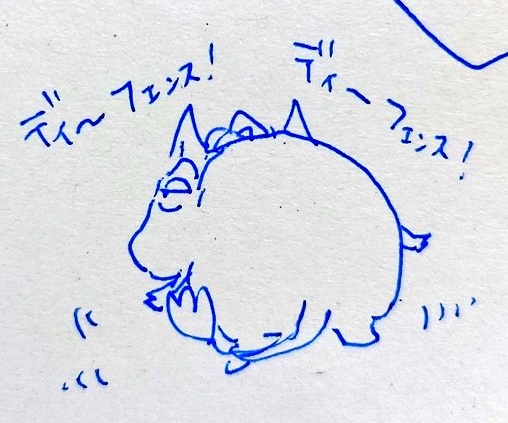 ディ〜フェンス!
ディ〜フェンス!